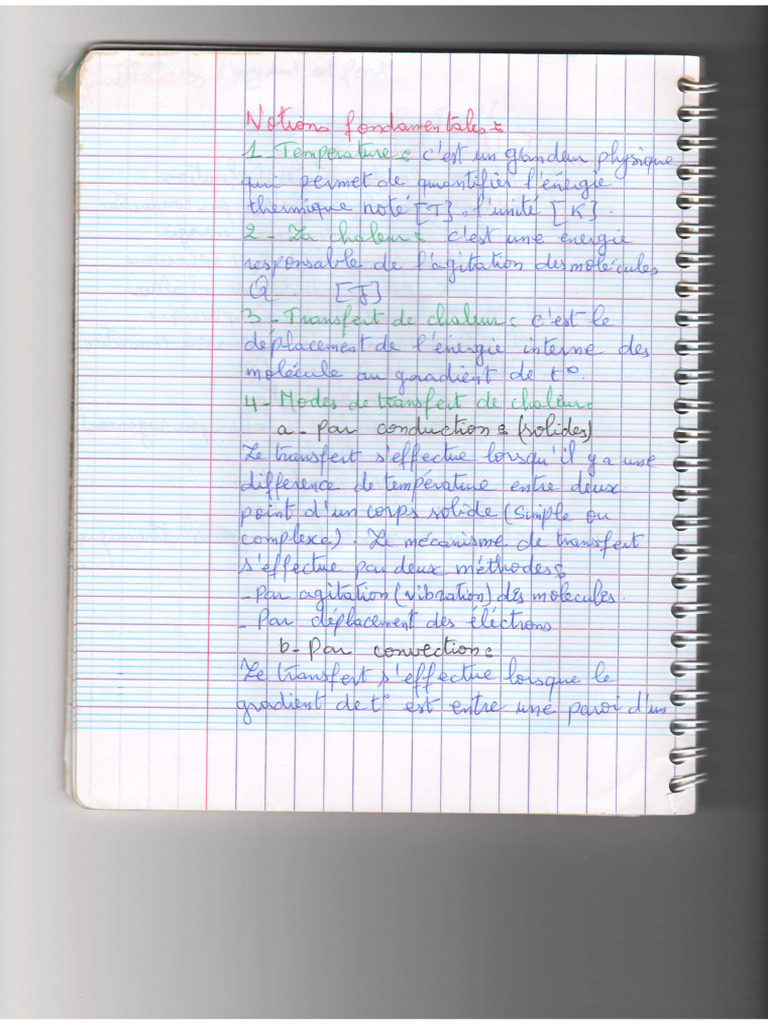 Notions fondamentales :
1_ Température : c'est un grandeur physique
qui permet de quantifier l'énergie
thermique noté [T], l'unité [K].
2_ La chaleur : c'est une énergie
responsable de l'agitation des molécules
Q [J]
3_ Transfert de chaleur : c'est le
déplacement de l'énergie interne des
molécule au gradient de t°.
4_ Modes de transfert de chaleur :
a_ Par conduction : (solides)
Le transfert s'effectue lorsqu'il y a une
différence de température entre deux
point d'un corps solide (simple ou
complexe). Le mécanisme de transfert
s'effectue par deux méthodes :
_ Par agitation (vibration) des molécules.
_ Par déplacement des électrons
b_ Par convection :
Le transfert s'effectue lorsque le
gradient de t° est entre une paroi d'un